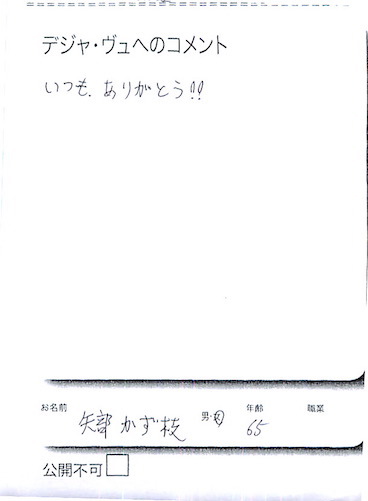 デジャ・ヴュへのコメント
いつも、ありがとう!!
お名前 矢部 かず枝 男・女 年齢 65 職業
公開不可 □